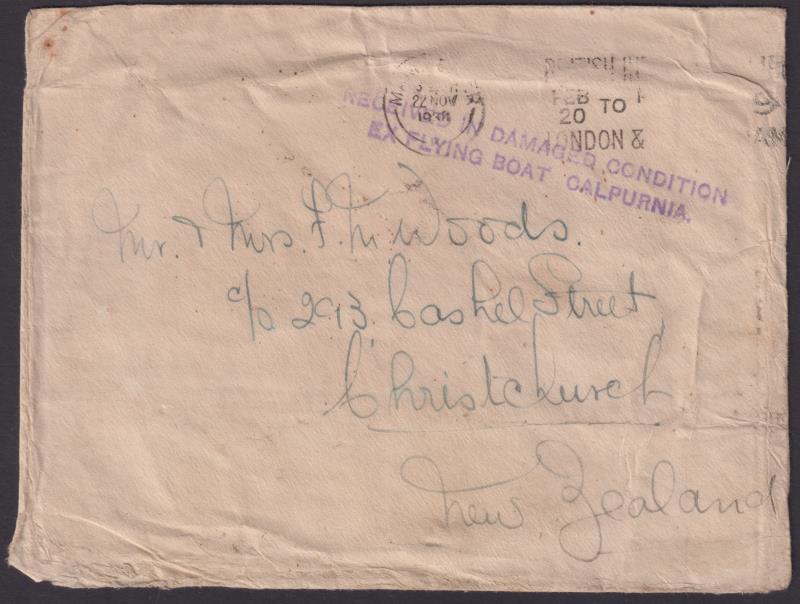 22 NOV
1938
BRITISH
FEB TO
20
LONDON &
RECEIVED IN DAMAGED CONDITION
EX FLYING BOAT CALPURNIA.
Mr. & Mrs. F. M. Woods.
c/o 293. Cashel Street,
Christchurch
New Zealand